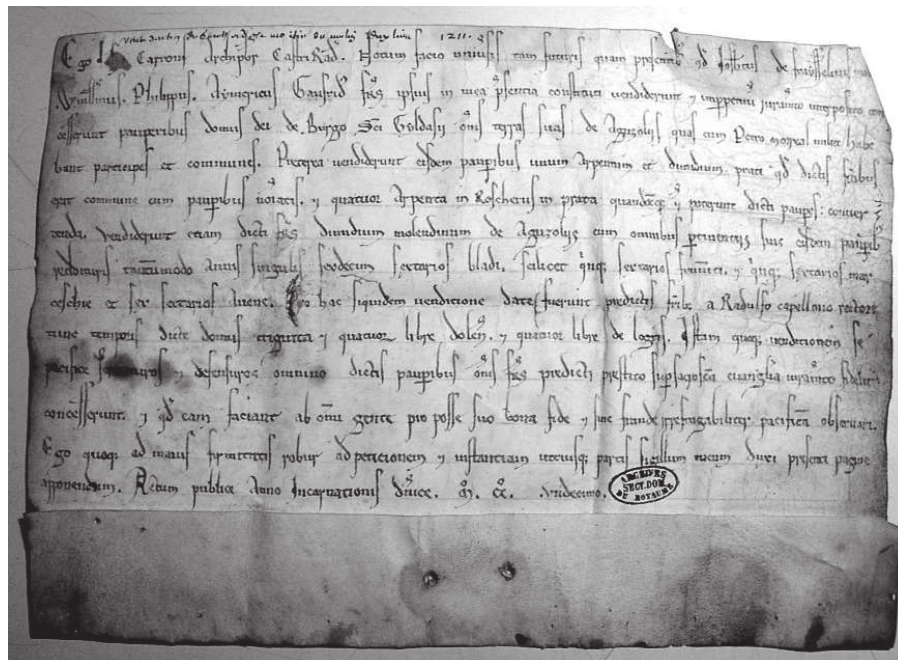 1211.
Ego Caproni Archipbr Castri Rad. Notum facio uniusis tam futuris quam presentib qd de
Philippus. Aymericus Gaufrid frs ipsius in mea psentia constituti vendiderunt ⁊ imppetuu iuramto interposito con
cesserunt pauperibus domus dei de Burgo Sci Goldasii oms terras suas de Aguzolis quas cum Petro milite habe
bant participes et communes. Preterea vendiderunt eisdem paupibus unum Arpentum et dimidium prati qd dictis fribus
erat commune cum paupibus noiatis. ⁊ quatuor Arpenta in Roscherus in prata quandocq ⁊ poterunt dicti paupes: conver
tenda. Vendiderunt etiam dicti frs dimidium molendinum de Aguzolis cum omnibus ptinentiis suis eisdem paupib
reddituris tantummodo Annis singulis sexdecim sextarios bladi. scilicet qinq sextarios frumti. ⁊ qinq sextarios mar
ceschie et sex sextarios avene. Pro hac siquidem venditione date fuerunt predictis frib a Radulfo capellano rectore
tunc temporis dicte domus triginta ⁊ quatuor libre dolen. ⁊ quatuor libre de Istam quoq venditionem se
pacifice ⁊ defensuros omnino dictis paupibus oms frs predicti prestito sup sacrosca euanglia iuramto fidelit
concesserunt. ⁊ qd eam faciant ab omi gente pro posse suo bona fide ⁊ sine fraude irrefragabiliter pacifice observari.
Ego quoq ad maius firmitatis robur ad peticionem ⁊ instantiam utriusq partis sigillum meum duxi presenti pagine
apponendum. Actum publice Anno Incarnationis dnice. M. CC. undecimo.
ARCHIVES
SECT. DOM.
DU ROYAUME